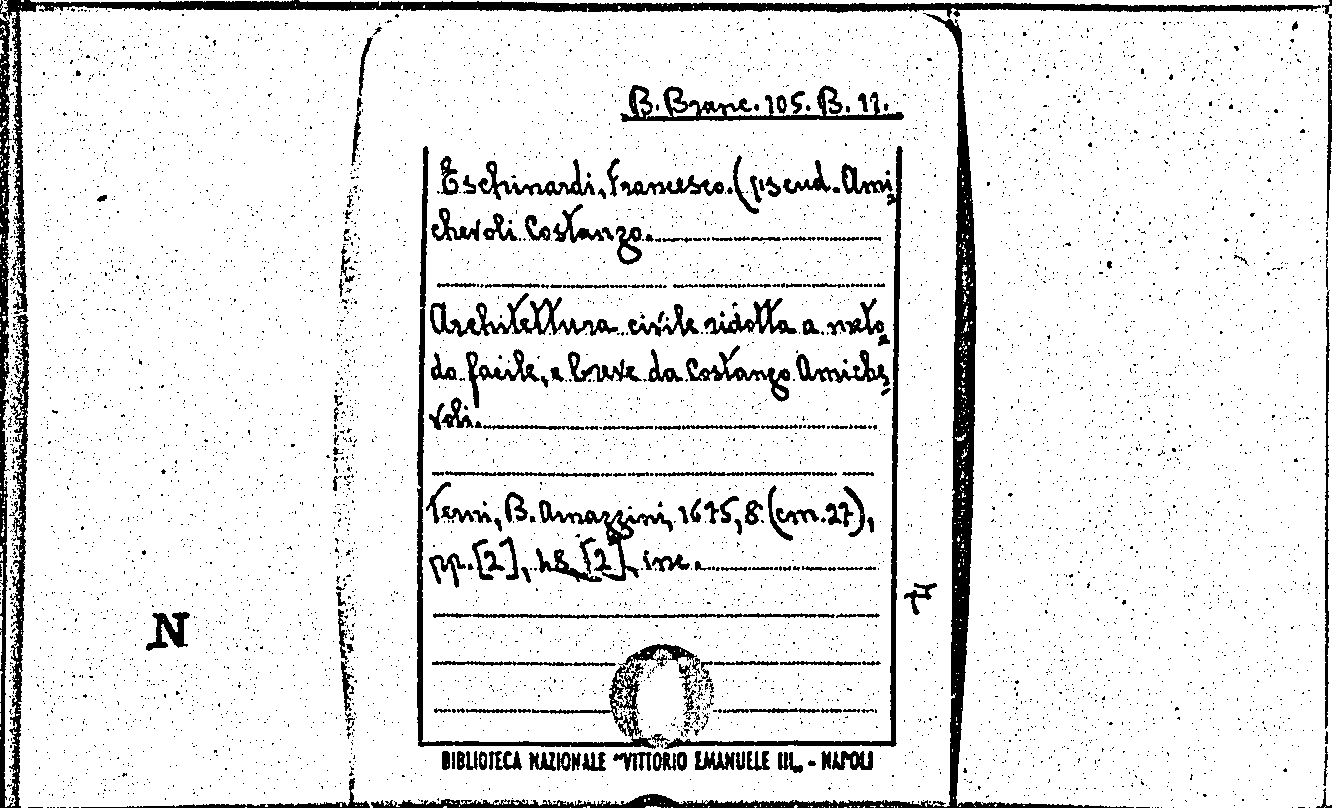 B. Branc. 105. B. 11.
Eschinardi, Francesco. (pseud. Ami-
chevoli Costanzo.
Architettura civile ridotta a meto-
do facile, e breve da Costanzo Amiche-
voli.
Terni, B. Arnazzini, 1675, 8° (cm. 27),
pp. [2], 48, [2], inc.
N
BIBLIOTECA NAZIONALE "VITTORIO EMANUELE III„ - NAPOLI